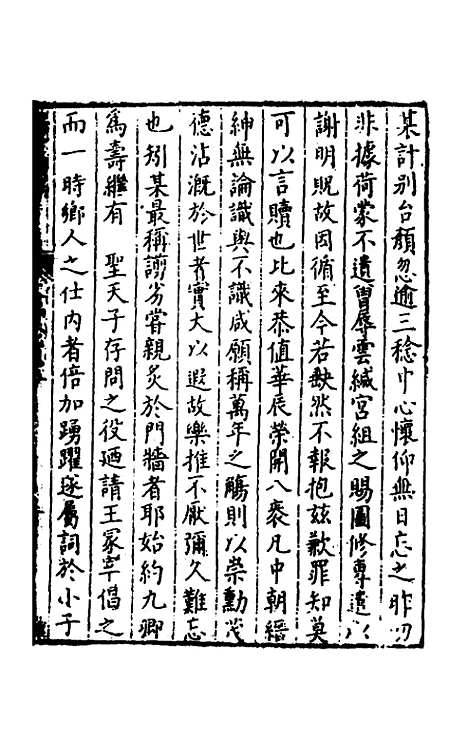 某計别台顏忽逾三稔中心懷仰無日忘之昨叨
非據荷蒙不遺曾辱雲緘宮組之賜圖修專遣以
謝明貺故因循至今若缺然不報抱兹歉罪知莫
可以言贖也比來恭值華辰榮開八袠凡中朝縉
紳無論識與不識咸願稱萬年之觴則以崇勳茂
德沾溉於世者實大以遐故樂推不厭彌久難忘
也矧某最稱謭劣嘗親炙於門牆者耶始約九卿
爲壽繼有 聖天子存問之役廼請王冢宰倡之
而一時鄉人之仕内者倍加踴躍遂屬詞於小子